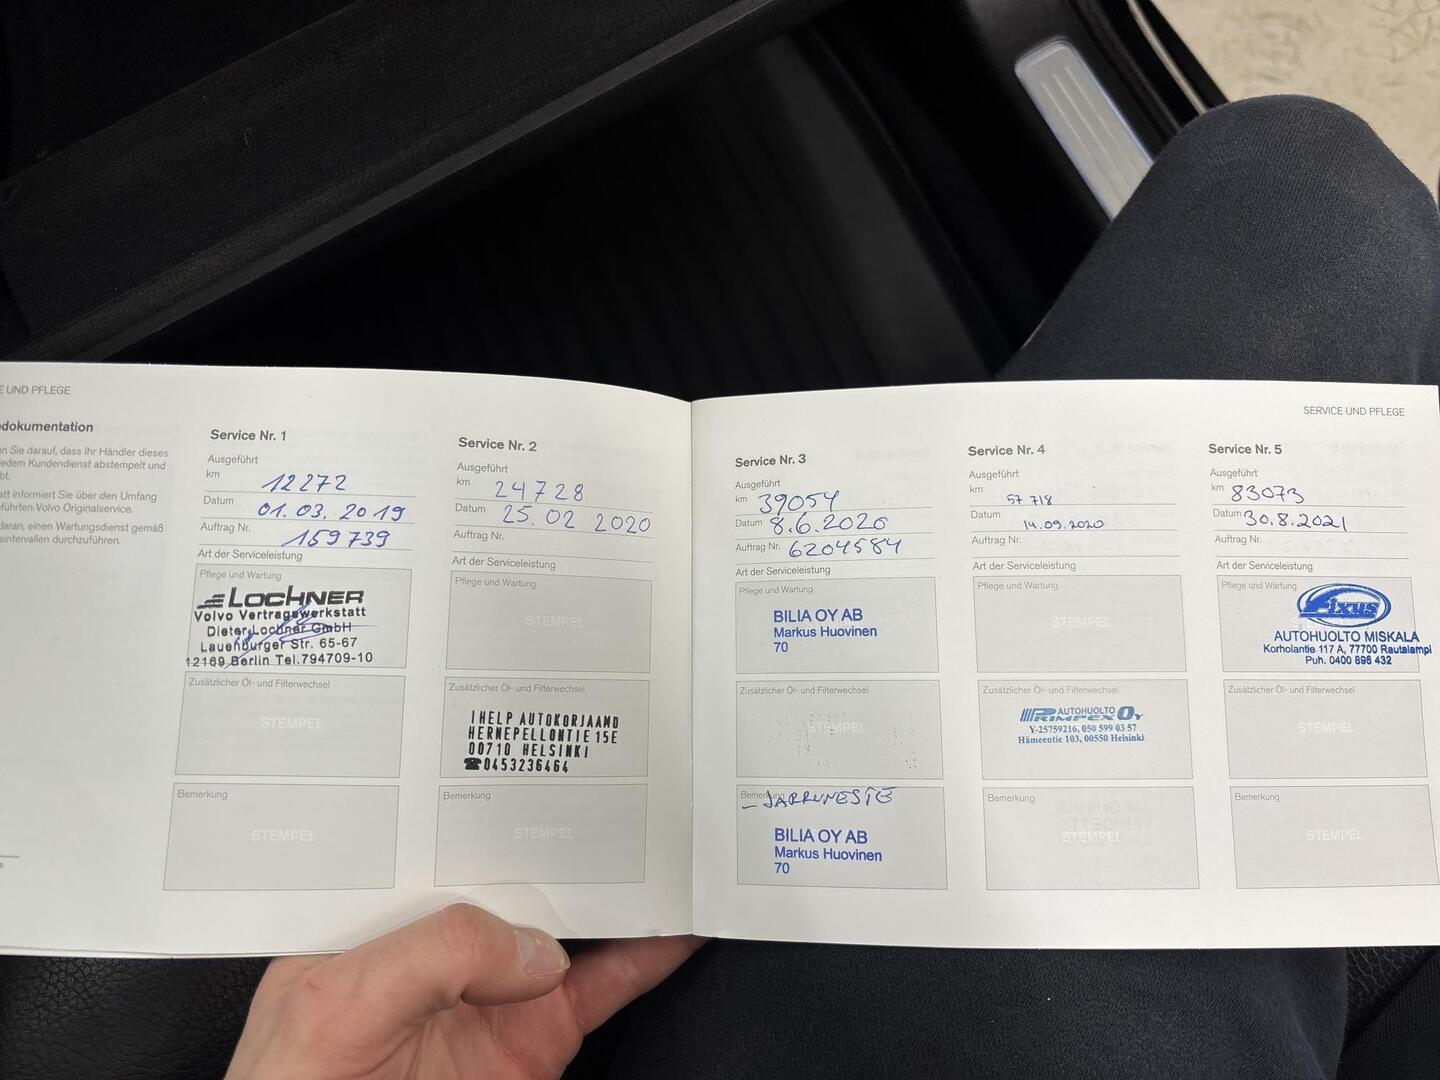 E UND PFLEGE
edokumentation
en Sie darauf, dass Ihr Händler dieses
jedem Kundendienst abstempelt und
bt.
att informiert Sie über den Umfang
eführten Volvo Originalservice.
daran, einen Wartungsdienst gemäß
sintervallen durchzuführen.
Service Nr. 1
Ausgeführt
km 12272
Datum 01.03.2019
Auftrag Nr. 159739
Art der Serviceleistung
Pflege und Wartung
LOCHNER
Volvo Vertragswerkstatt
Dieter Lochner GmbH
Lauenburger Str. 65-67
12169 Berlin Tel.794709-10
Zusätzlicher Öl- und Filterwechsel
STEMPEL
Bemerkung
STEMPEL
Service Nr. 2
Ausgeführt
km 24728
Datum 25.02 2020
Auftrag Nr.
Art der Serviceleistung
Pflege und Wartung
STEMPEL
Zusätzlicher Öl- und Filterwechsel
IHELP AUTOKORJAAMO
HERNEPELLONTIE 15E
00710 HELSINKI
☎0453236464
Bemerkung
STEMPEL
SERVICE UND PFLEGE
Service Nr. 3
Ausgeführt
km 39054
Datum 8.6.2020
Auftrag Nr. 6204584
Art der Serviceleistung
Pflege und Wartung
BILIA OY AB
Markus Huovinen
70
Zusätzlicher Öl- und Filterwechsel
STEMPEL
Bemerkung
- JARRUNESTE
BILIA OY AB
Markus Huovinen
70
Service Nr. 4
Ausgeführt
km 57 718
Datum 14.09.2020
Auftrag Nr.
Art der Serviceleistung
Pflege und Wartung
STEMPEL
Zusätzlicher Öl- und Filterwechsel
AUTOHUOLTO
PRIMPEX OY
Y-25759216, 050 599 03 57
Hämeentie 103, 00550 Helsinki
Bemerkung
STEMPEL
Service Nr. 5
Ausgeführt
km 83073
Datum 30.8.2021
Auftrag Nr.
Art der Serviceleistung
Pflege und Wartung
Fixus
AUTOHUOLTO MISKALA
Korholantie 117 A, 77700 Rautalampi
Puh. 0400 896 432
Zusätzlicher Öl- und Filterwechsel
STEMPEL
Bemerkung
STEMPEL